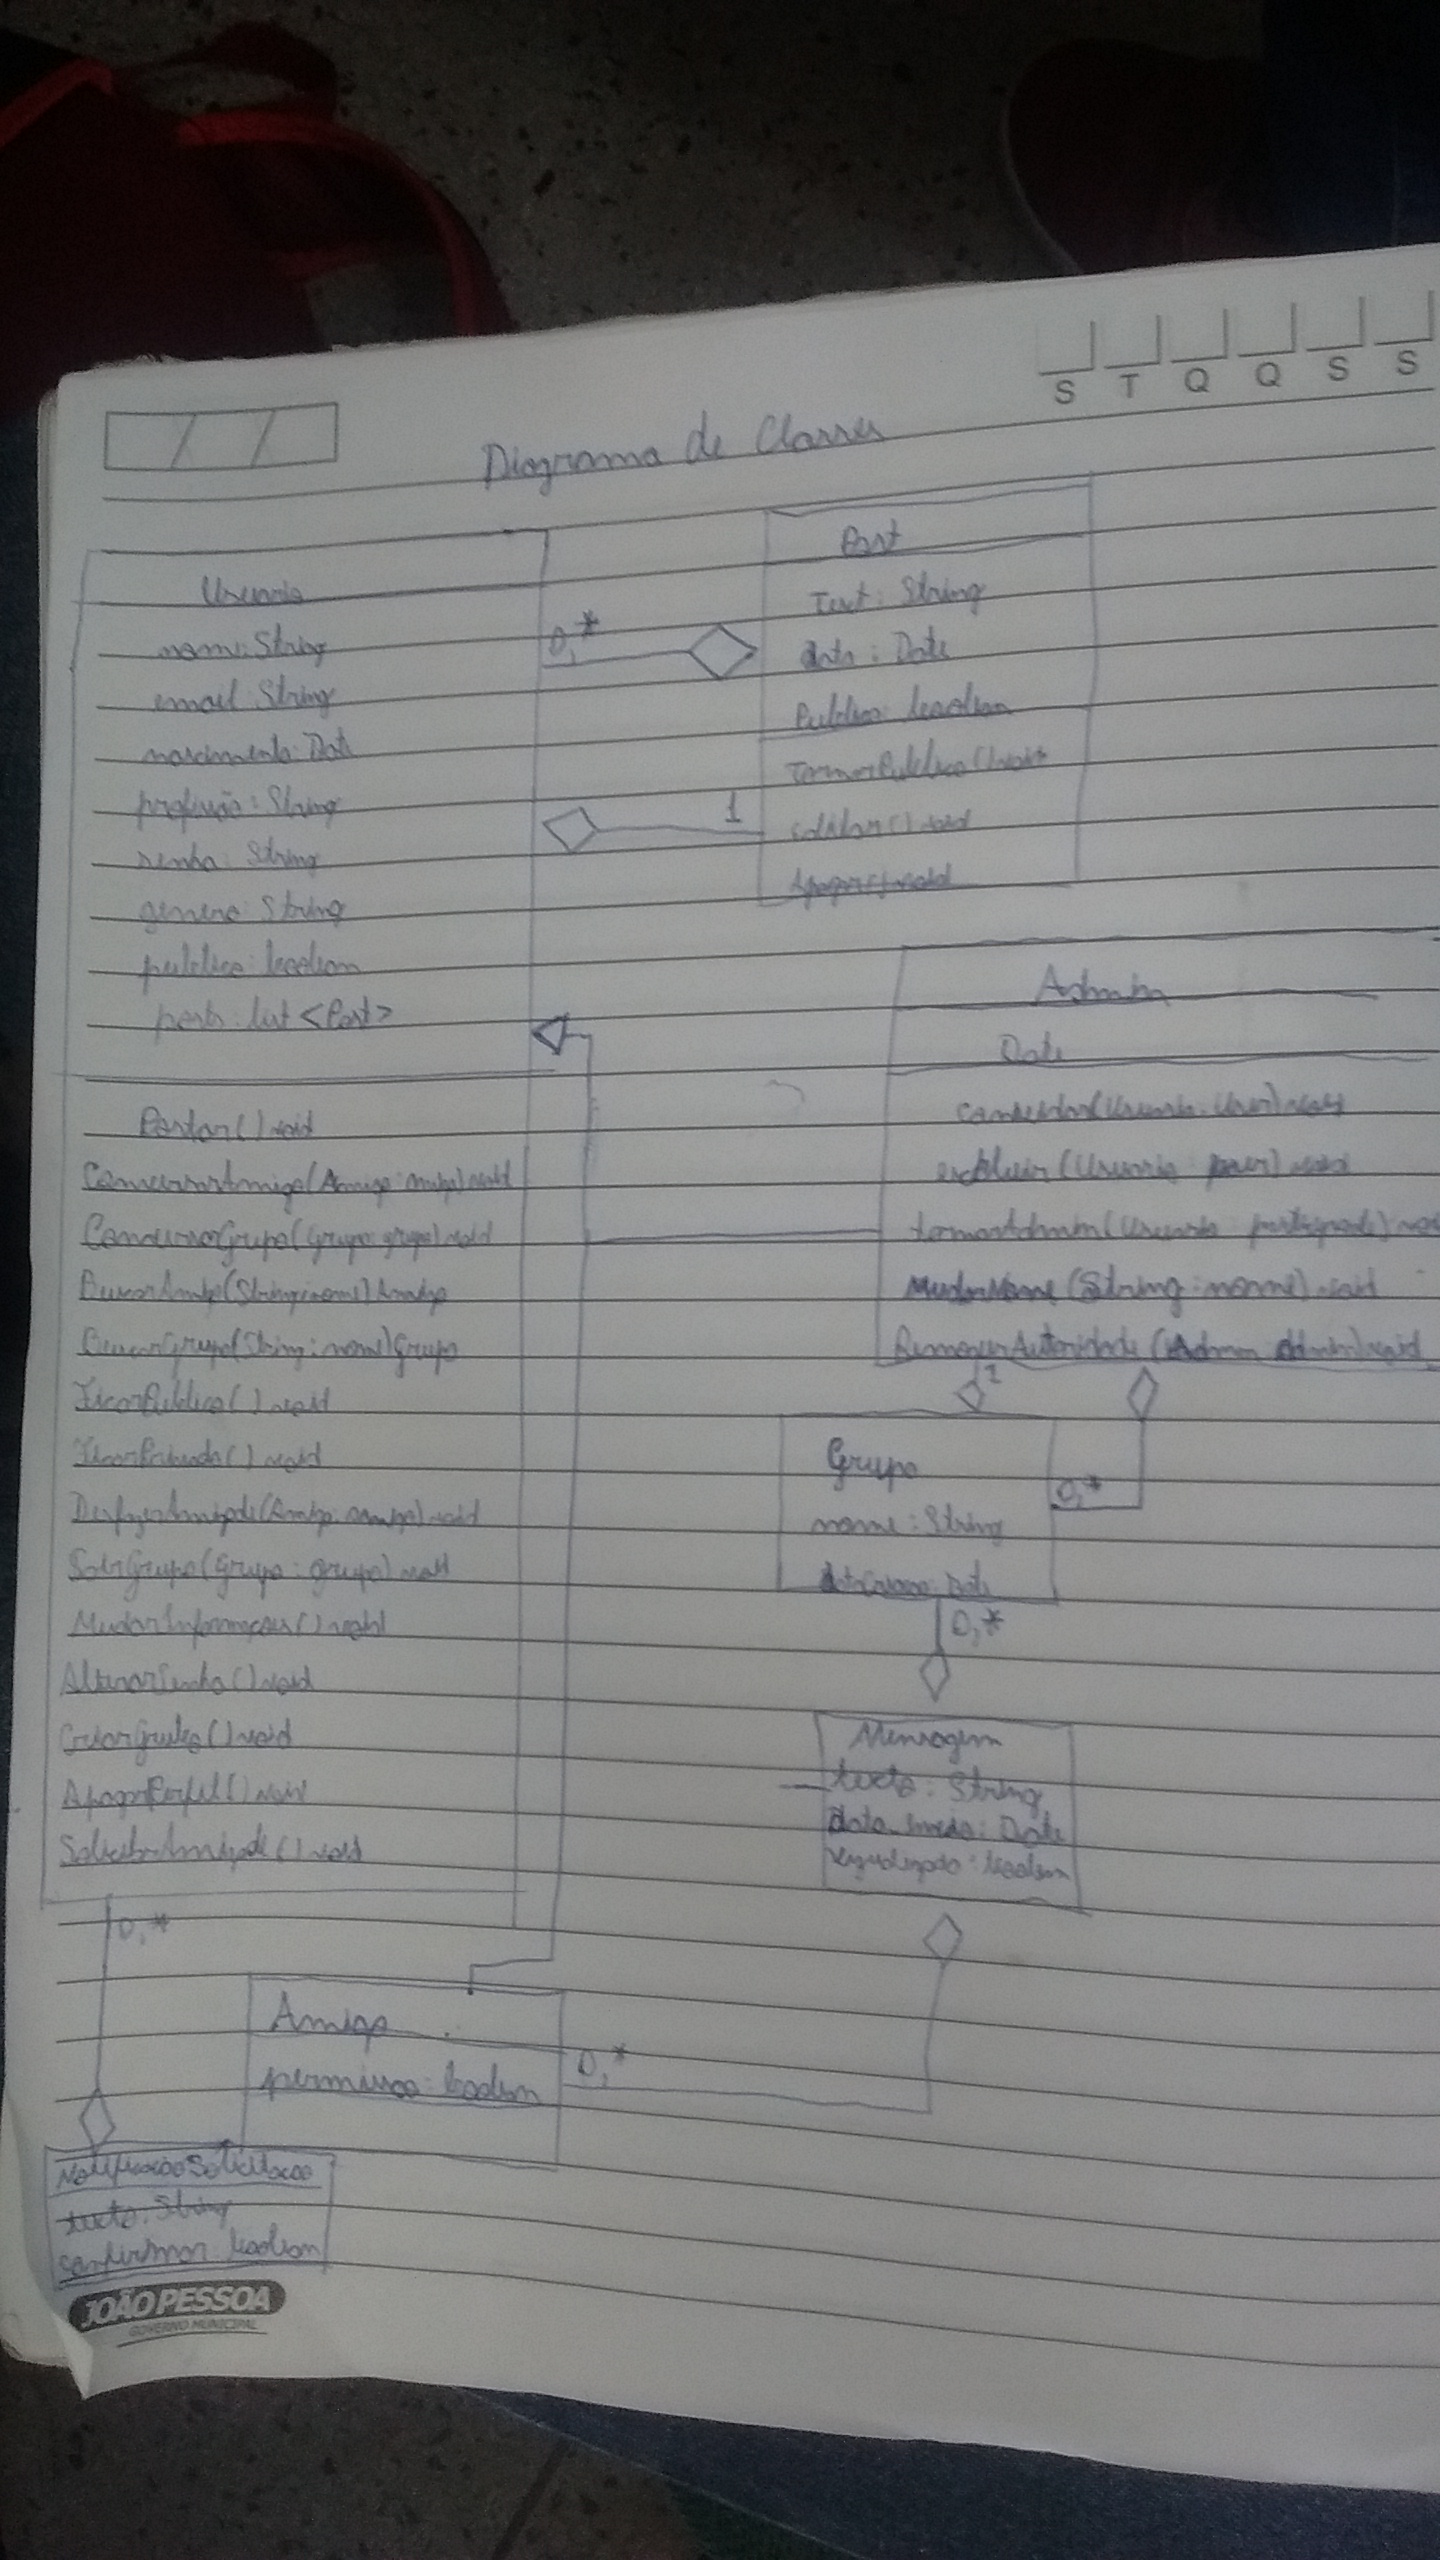 S T Q Q S S
Diagrama de Classes
Usuario
nome: String
email: String
nascimento: Date
profissão: String
senha: String
genero: String
publico: boolean
posts: list <Post>
Postar() void
ConversarAmigo(Amigo: amigo) void
ConversarGrupo(Grupo: grupo) void
BuscarAmigo(String: nome) Amigo
BuscarGrupo(String: nome) Grupo
FicarPublico() void
FicarPrivado() void
DesfazerAmizade(Amigo: amigo) void
SairGrupo(Grupo: grupo) void
MudarInformações() void
AlterarSenha() void
() void
ApagarPerfil() void
SolicitarAmizade() void
0,*
1
Post
Text: String
data: Date
Publico: boolean
TornarPublico() void
editar() void
Apagar() void
Admin
Date
(Usuario: User) void
excluir(Usuario: ) void
tornarAdmin(Usuario: participante)
MudarNome(String: nome) void
RemoverAutoridade(Admin admin) void
Grupo
nome: String
: Date
0,*
0,*
Mensagem
texto: String
data_envio: Date
visualizado: boolean
0,*
Amigo
permissao: boolean
0,*
NotificacaoSolicitacao
texto: String
confirmar: boolean
JOÃO PESSOA
GOVERNO MUNICIPAL